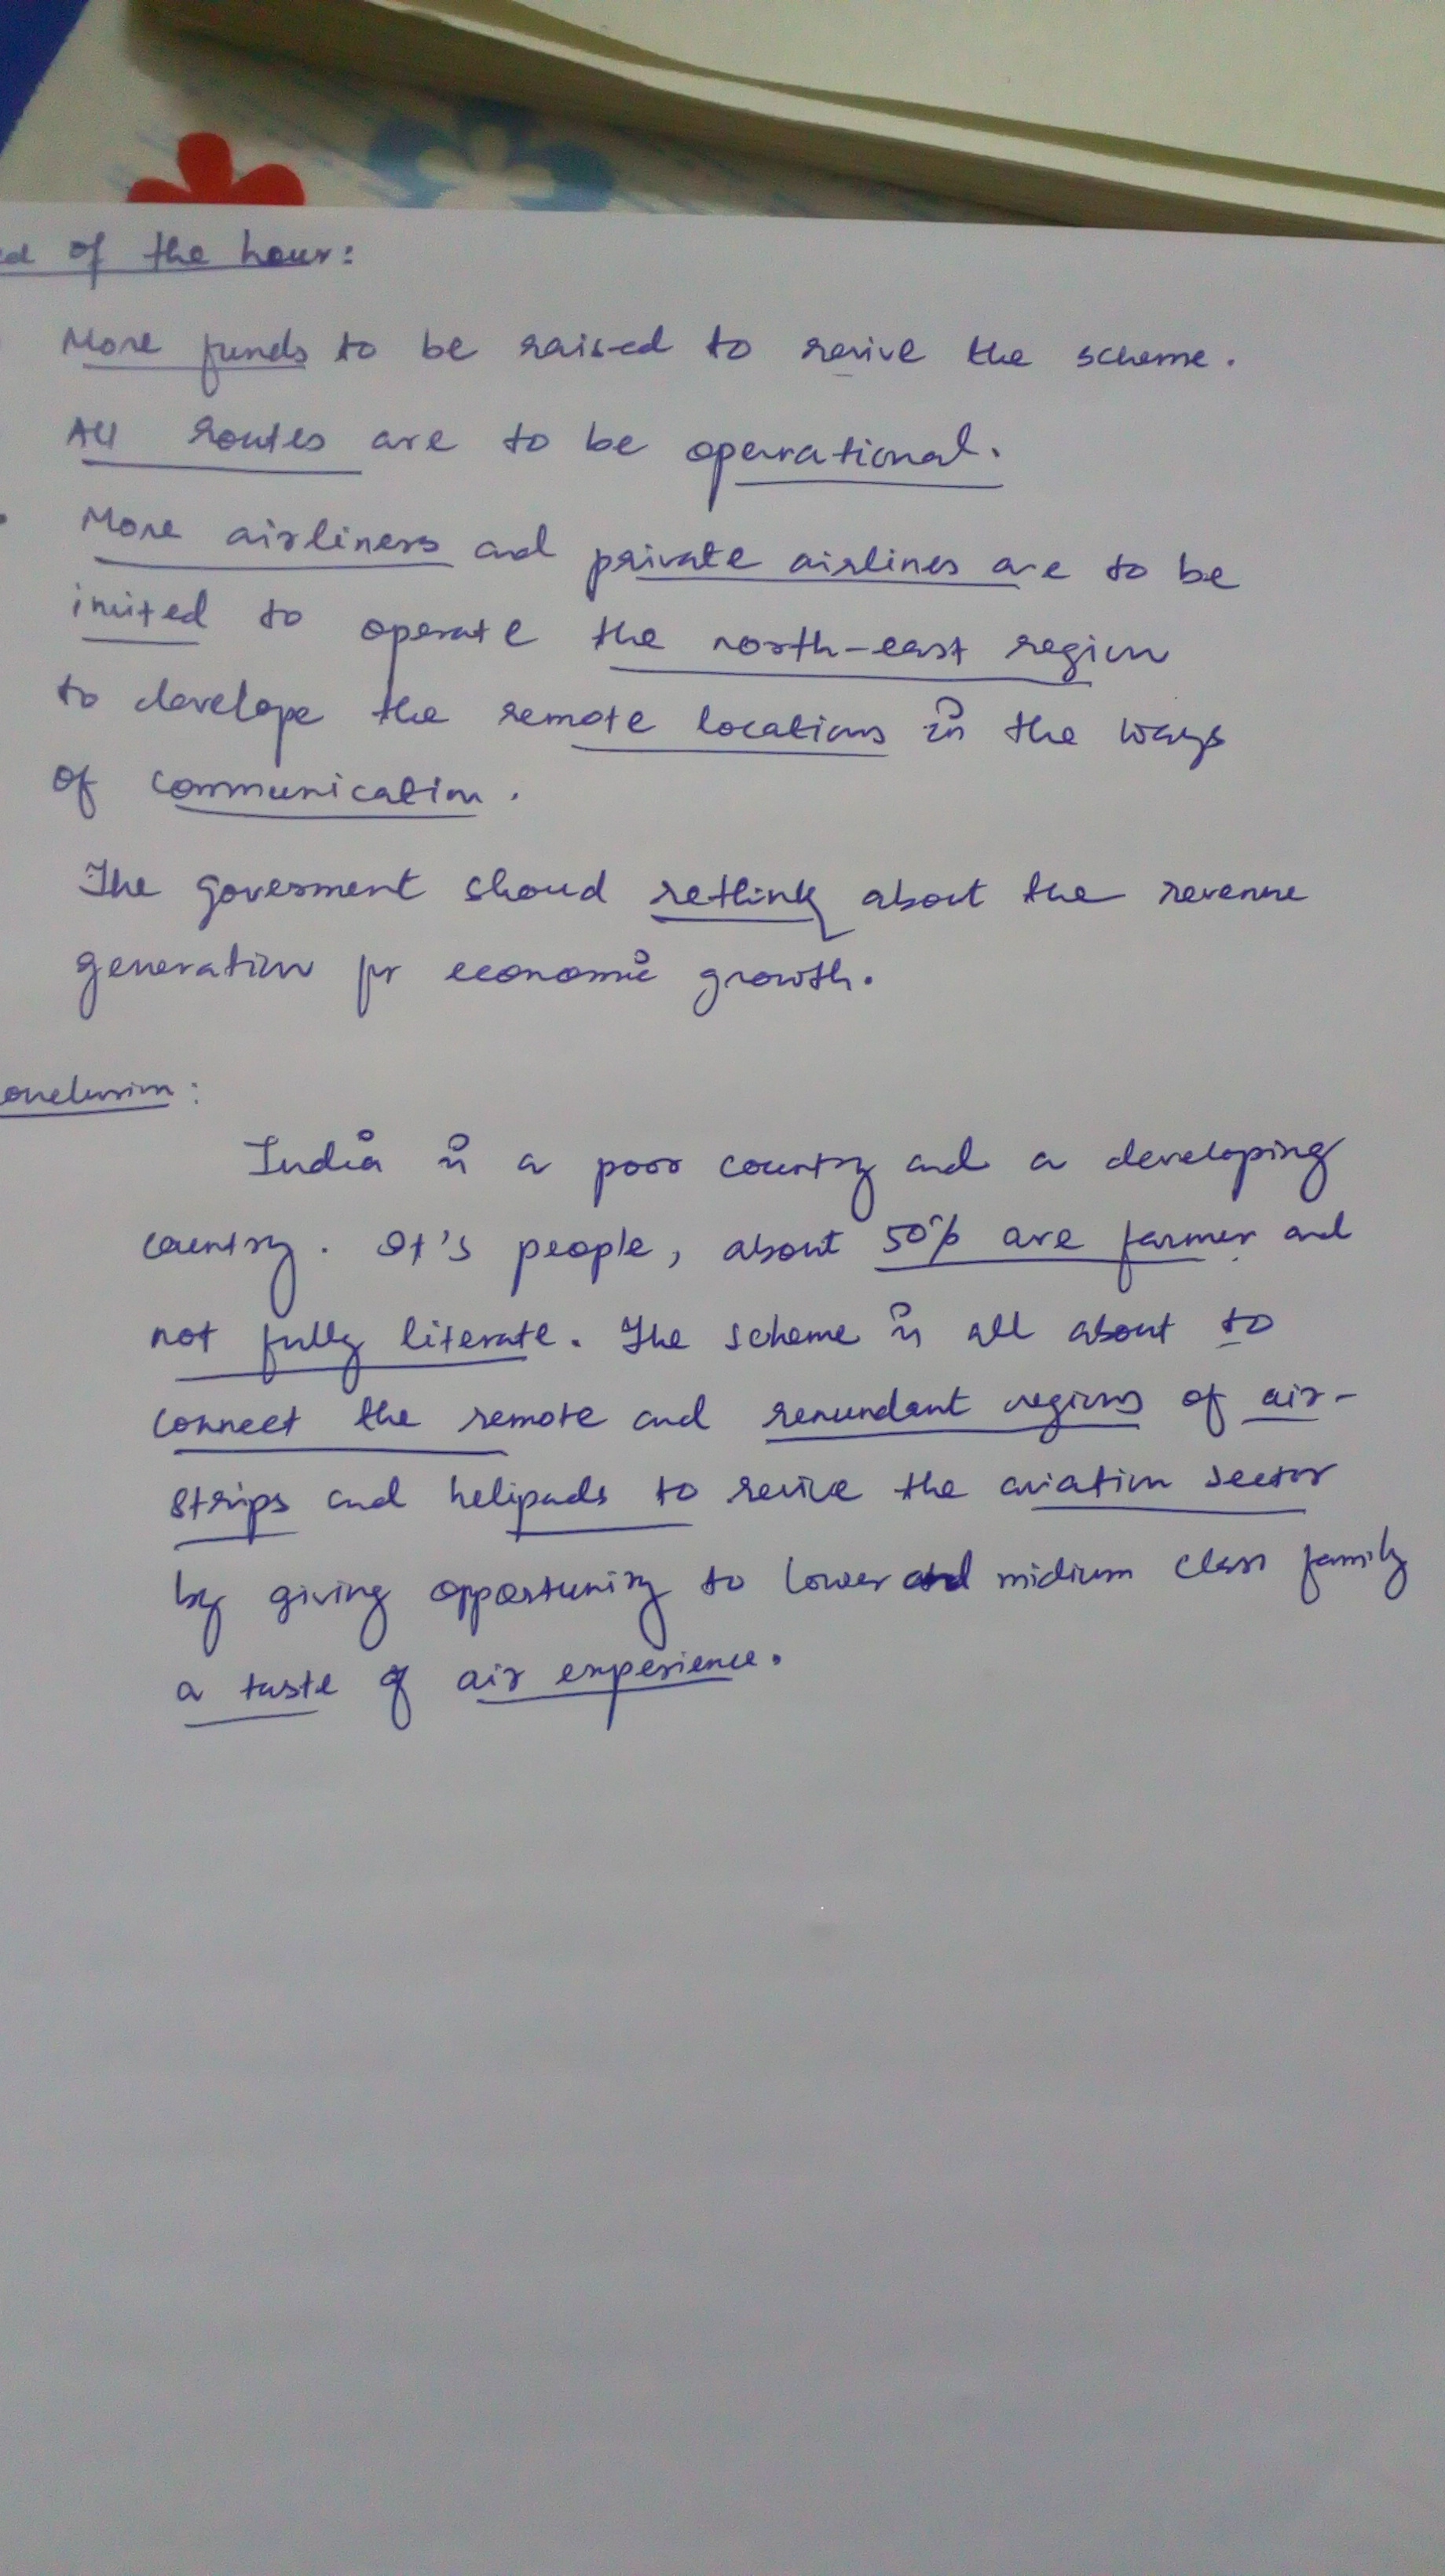 ed of the hour:
More funds to be raised to revive the scheme.
All routes are to be operational.
More airliners and private airlines are to be
invited to operate the north-east region
to develope the remote locations in the ways
of communication.
The goverment shoud rethink about the revenue
generation for economic growth.
onclusion:
India is a poor country and a developing
country. It's people, about 50% are farmer and
not fully literate. The scheme is all about to
connect the remote and renundant regions of air-
strips and helipads to revive the aviation sector
by giving opportunity to lower and midium class family
a taste of air experience.